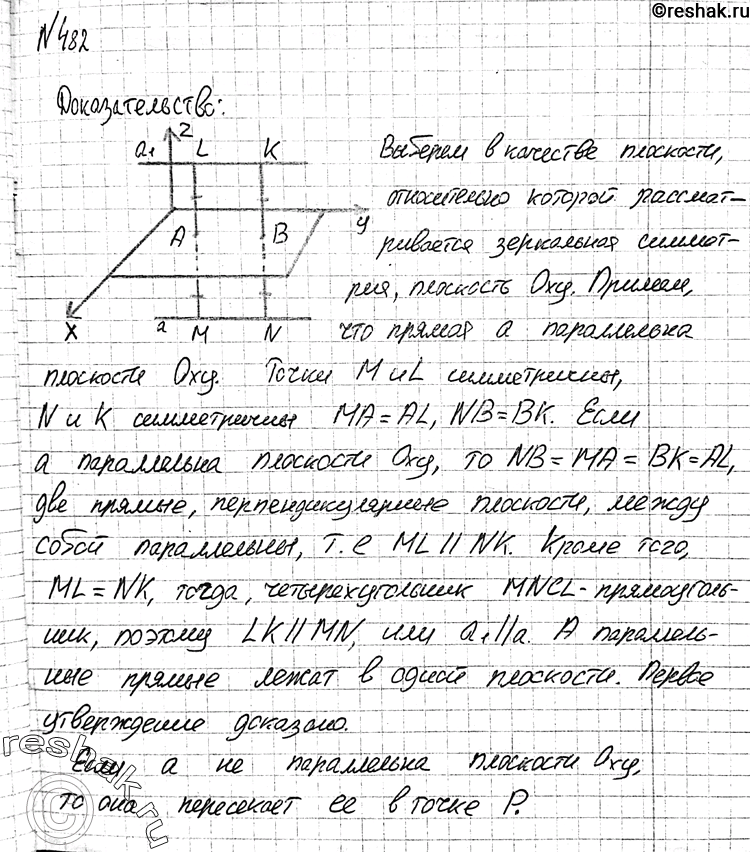 ©reshak.ru
№482
Доказательство:
a₁ z L K
A B y
x a M N
Выберем в качестве плоскости,
относительно которой рассмат-
ривается зеркальная симмет-
рия, плоскость Oxy. Примем,
что прямая a параллельна
плоскости Oxy. Точки M и L симметричны,
N и K симметричны MA = AL, NB = BK. Если
a параллельна плоскости Oxy, то NB = MA = BK = AL,
две прямые, перпендикулярные плоскости, между
собой параллельны, т.е ML // NK. Кроме того,
ML = NK, тогда, четырехугольник MNCL - прямоуголь-
ник, поэтому LK // MN, или a₁ // a. А параллель-
ные прямые лежат в одной плоскости. Первое
утверждение доказано.
Если a не параллельна плоскости Oxy,
то она пересекает ее в точке P.
reshak.ru